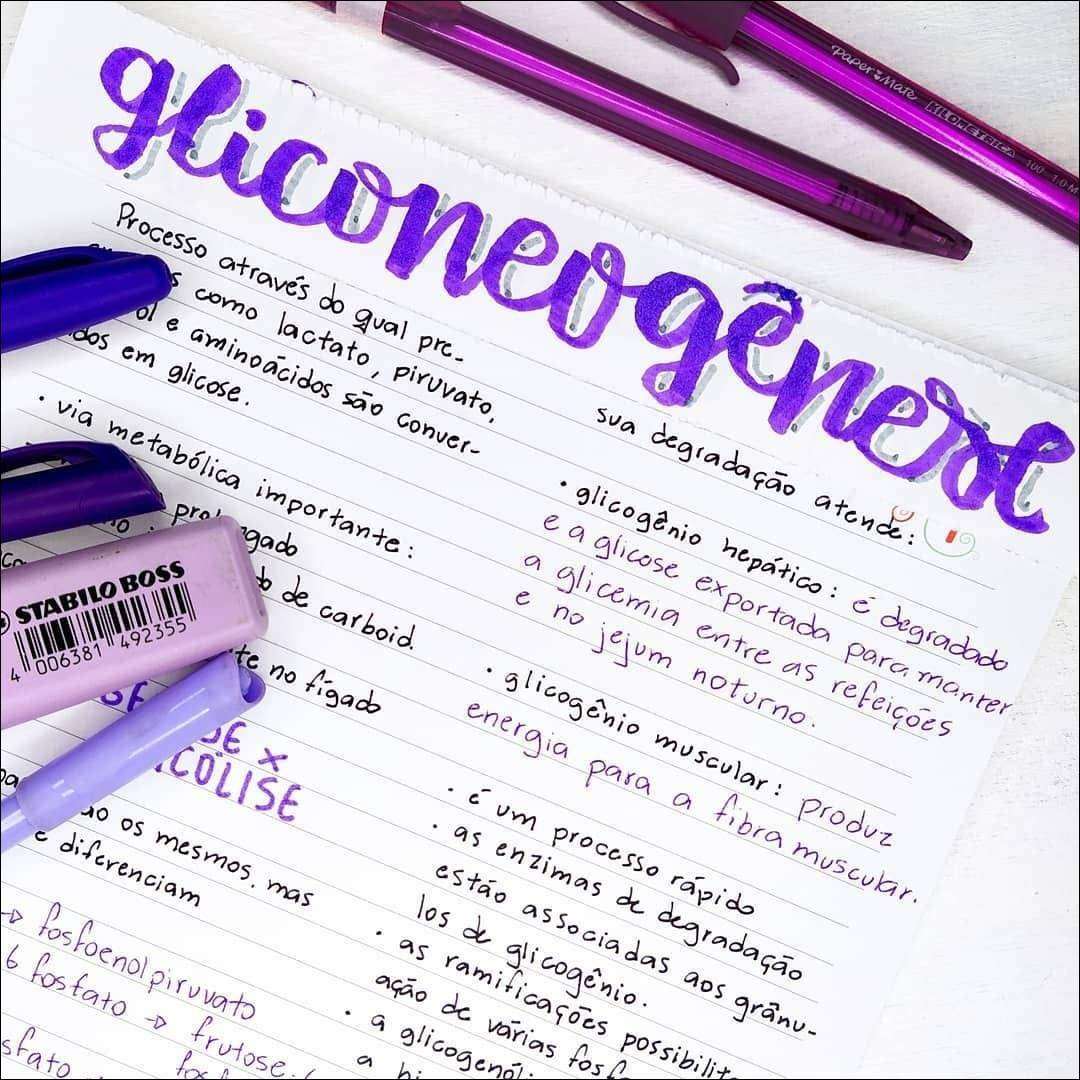 gliconeogênese
Processo através do qual pre-
como lactato, piruvato,
e aminoácidos são conver-
em glicose.
• via metabólica importante:
prolongado
de carboid.
no fígado
X
mesmos. mas
diferenciam
→ fosfoenolpiruvato
6 fosfato → frutose
sua degradação atende:
• glicogênio hepático: é degradado
e a glicose exportada para manter
a glicemia entre as refeições
e no jejum noturno.
• glicogênio muscular: produz
energia para a fibra muscular.
• é um processo rápido
• as enzimas de degradação
estão associadas aos grânu-
los de glicogênio.
• as ramificações
ação de várias
• a
a
Paper Mate KILOMETRICA 100 1.0 M
STABILO BOSS
4 006381 492355